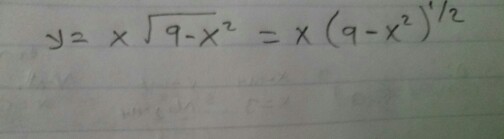 y = x √(9-x²) = x (9-x²)^1/2